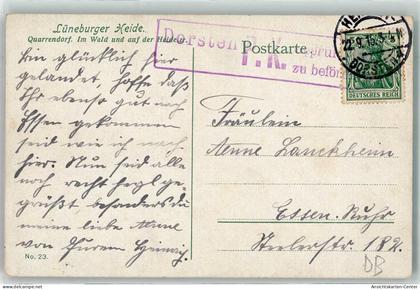 Lüneburger Heide.
Quarrendorf. Im Wald und auf der Heide
Postkarte
Dorsten
P.K.
zu beför
22.9.15.3-4N
DEUTSCHES REICH
Bin glücklich hier
gelandet, hoffe daß
Ihr ebenso gut nach
Essen gekommen
seid wie ich nach
hier. Nun seid alle
noch recht herzl. ge-
grüßt besonders du
meine liebe Änne
von Eurem Heinrich.
Fräulein
Änne Lanckheim
Essen-Ruhr
Steelerstr. 182.
No. 23.
DB
Ansichtskarten-Center.de